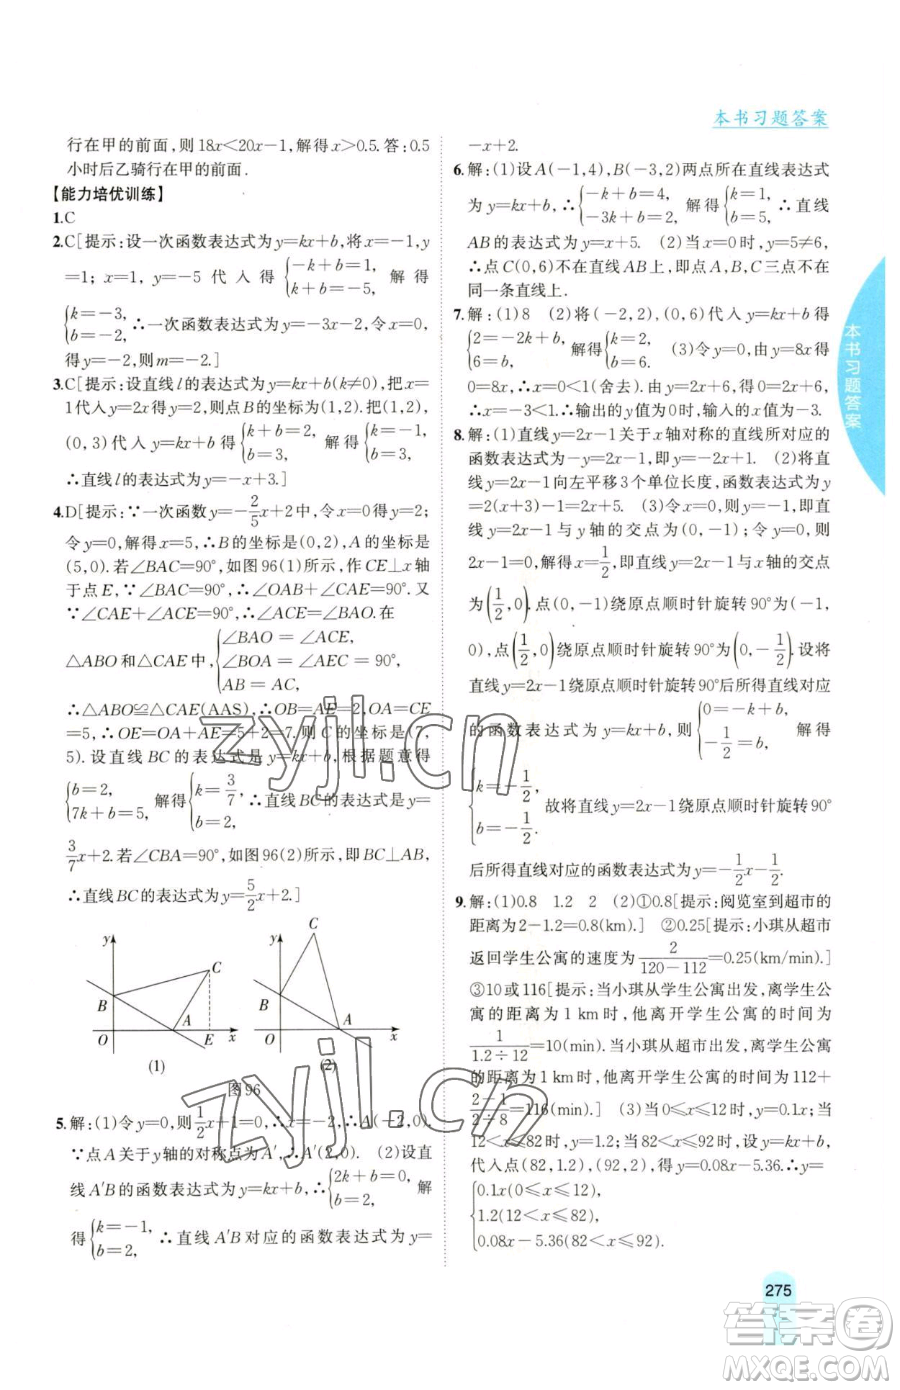 本书习题答案
行在甲的前面，则18x<20x-1，解得x>0.5.答：0.5
小时后乙骑行在甲的前面.
【能力培优训练】
1.C
2.C[提示：设一次函数表达式为y=kx+b，将x=-1，y
=1；x=1，y=-5 代入得{-k+b=1, k+b=-5, 解得
{k=-3, b=-2, ∴一次函数表达式为y=-3x-2，令x=0，
得y=-2，则m=-2.]
3.C[提示：设直线l的表达式为y=kx+b(k≠0).把x=
1代入y=2x得y=2，则点B的坐标为(1,2).把(1,2)，
(0,3)代入y=kx+b得{k+b=2, b=3, 解得{k=-1, b=3,
∴直线l的表达式为y=-x+3.]
4.D[提示：∵一次函数y=-2/5x+2中，令x=0得y=2；
令y=0，解得x=5，∴B的坐标是(0,2)，A的坐标是
(5,0).若∠BAC=90°，如图96(1)所示，作CE⊥x轴
于点E，∵∠BAC=90°，∴∠OAB+∠CAE=90°.又
∵∠CAE+∠ACE=90°，∴∠ACE=∠BAO.在
△ABO和△CAE中，{∠BAO=∠ACE, ∠BOA=∠AEC=90°, AB=AC,
∴△ABO≌△CAE(AAS)，∴OB=AE=2，OA=CE
=5，∴OE=OA+AE=5+2=7.则C的坐标是(7,
5).设直线BC的表达式是y=kx+b，根据题意得
{b=2, 7k+b=5, 解得{k=3/7, b=2, ∴直线BC的表达式是y=
3/7x+2.若∠CBA=90°，如图96(2)所示，即BC⊥AB，
∴直线BC的表达式为y=5/2x+2.]
y C B A O E x
(1)
y C B A O x
(2)
图96
5.解：(1)令y=0，则1/2x+1=0，∴x=-2，∴A(-2,0).
∵点A关于y轴的对称点为A′，∴A′(2,0). (2)设直
线A′B的函数表达式为y=kx+b，∴{2k+b=0, b=2, 解
得{k=-1, b=2, ∴直线A′B对应的函数表达式为y=
-x+2.
6.解：(1)设A(-1,4)，B(-3,2)两点所在直线表达式
为y=kx+b，∴{-k+b=4, -3k+b=2, 解得{k=1, b=5, ∴直线
AB的表达式为y=x+5. (2)当x=0时，y=5≠6，
∴点C(0,6)不在直线AB上，即点A，B，C三点不在
同一条直线上.
7.解：(1)8 (2)将(-2,2)，(0,6)代入y=kx+b得
{2=-2k+b, 6=b, 解得{k=2, b=6. (3)令y=0，由y=8x得
0=8x，∴x=0<1(舍去).由y=2x+6得0=2x+6，
∴x=-3<1，∴输出的y值为0时，输入的x值为-3.
8.解：(1)直线y=2x-1关于x轴对称的直线所对应的
函数表达式为-y=2x-1，即y=-2x+1. (2)将直
线y=2x-1向左平移3个单位长度，函数表达式为y
=2(x+3)-1=2x+5，即y=2x+5. (3)由题意得直
线y=2x-1与y轴的交点为(0,-1)；令y=0，则
2x-1=0，解得x=1/2，∴直线y=2x-1与x轴的交点
为(1/2,0).点(0,-1)绕原点顺时针旋转90°为(-1,
0)，点(1/2,0)绕原点顺时针旋转90°为(0,-1/2).设将
直线y=2x-1绕原点顺时针旋转90°后所得直线对应
的函数表达式为y=kx+b，则{0=-k+b, -1/2=b, 解得
{k=-1/2, b=-1/2. 故将直线y=2x-1绕原点顺时针旋转90°
后所得直线对应的函数表达式为y=-1/2x-1/2.
9.解：(1)0.8 1.2 2 (2)①0.8[提示：阅览室到超市的
距离为2-1.2=0.8(km).] ②0.25[提示：小琪从超市
返回学生公寓的速度为2/(120-112)=0.25(km).]
③10或116[提示：当小琪从学生公寓出发，离学生公寓
的距离为1 km时，他离开学生公寓的时间为
1/(1.2÷12)=10(min).当小琪从超市出发，离学生公寓
的距离为1 km时，他离开学生公寓的时间为112+
(2-1)/(2÷8)=116(min).] (3)当0≤x≤12时，y=0.1x；当
12<x≤82时，y=1.2；当82<x≤92时，设y=kx+b，
代入点(82,1.2)，(92,2)，得y=0.08x-5.36.∴y=
{0.1x(0≤x≤12),
1.2(12<x≤82),
0.08x-5.36(82<x≤92).
本书习题答案
275
zyjl.cn
zyjl.cn
答案圈
MXQE.COM